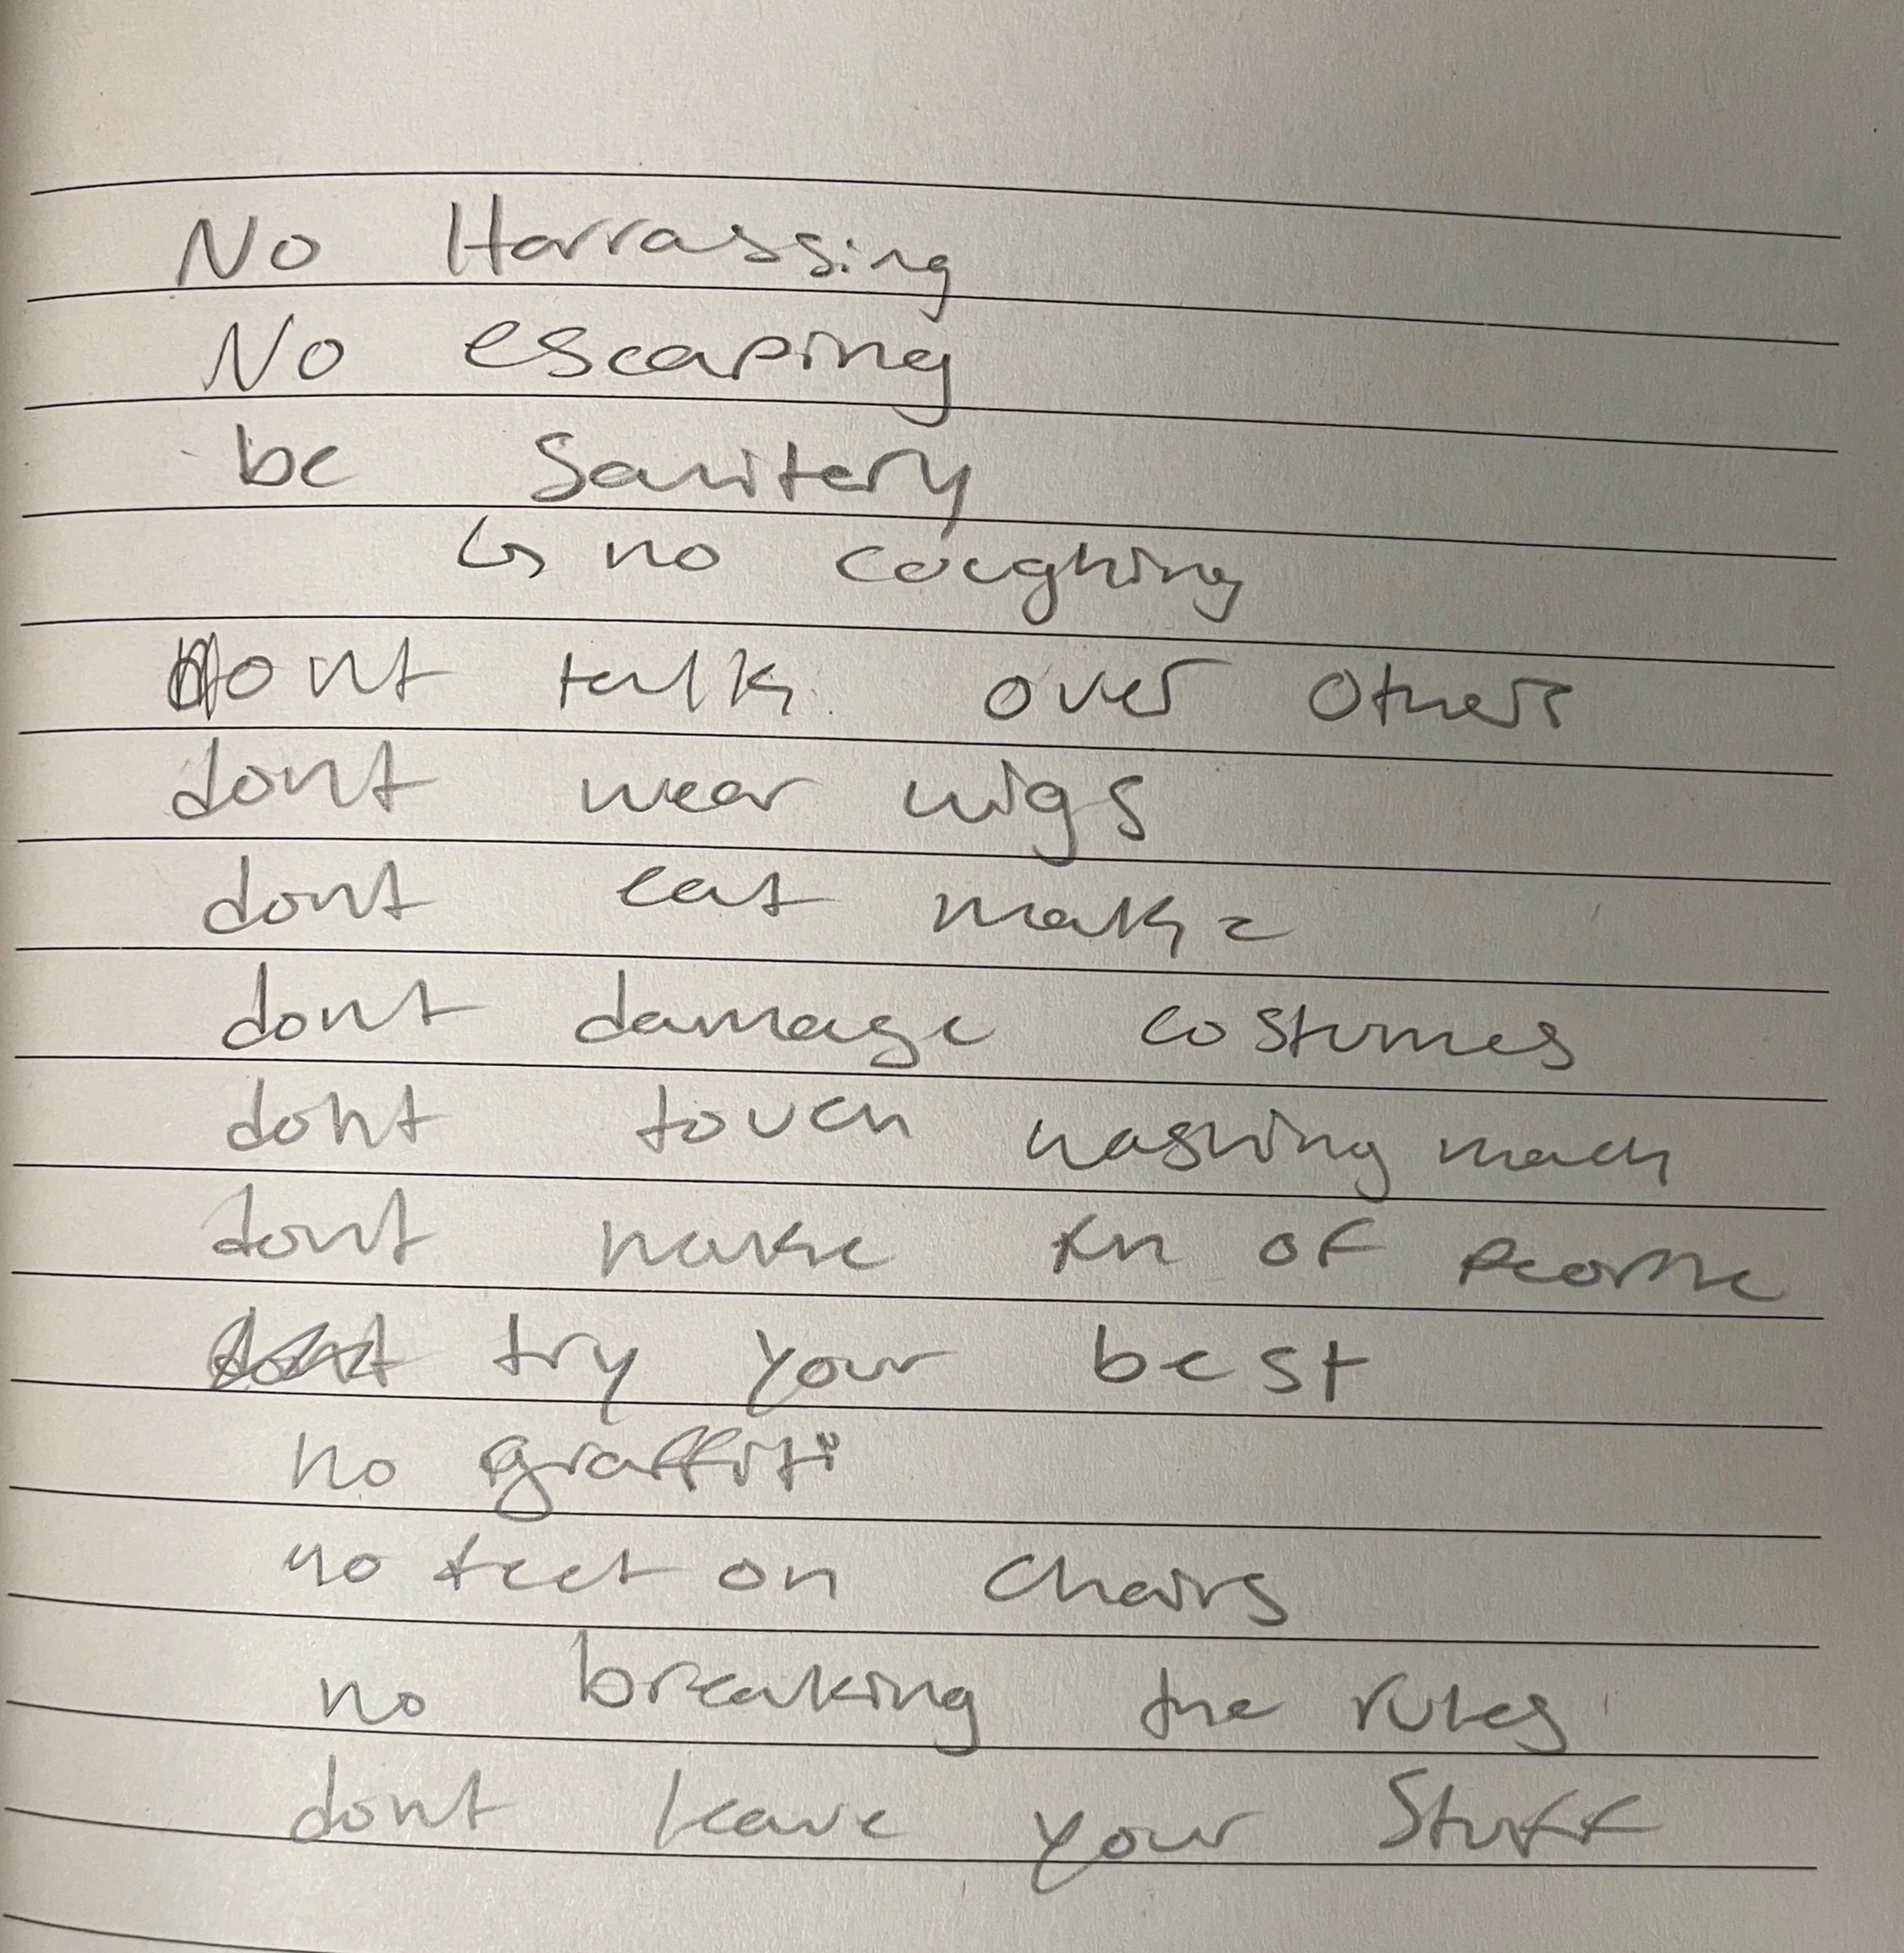 No Harrassing
No escaping
be Sanitery
↳ no coughing
dont talk over others
dont wear wigs
dont eat make
dont damage costumes
dont touch washing mach
dont make fun of people
try your best
no graffiti
no feet on chairs
no breaking the rules
dont leave your stuff